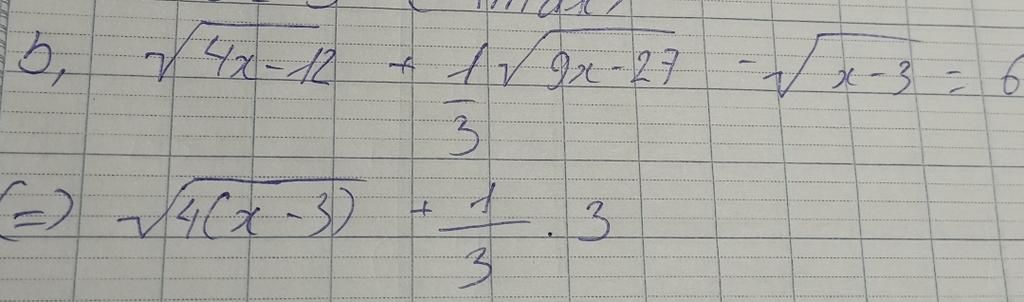 (max)
b, √(4x-12) + 1/3 √(9x-27) - √(x-3) = 6
(=) √(4(x-3)) + 1/3 . 3